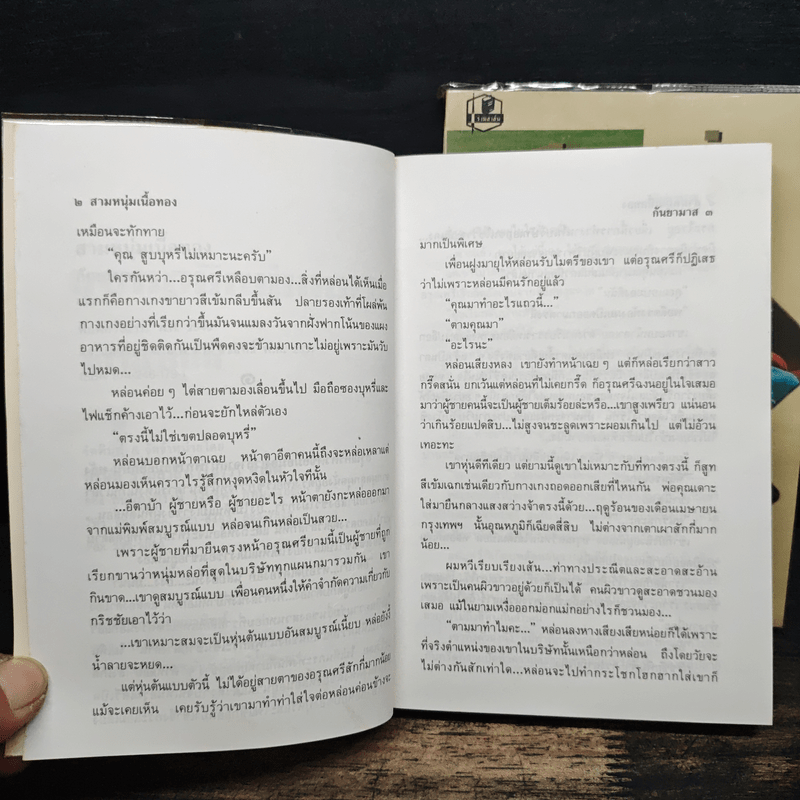 ๒ สามหนุ่มเนื้อทอง
เหมือนจะทักทาย
“คุณ สูบบุหรี่ไม่เหมาะนะครับ”
ใครกันหว่า...อรุณศรีเหลือบตามอง...สิ่งที่หล่อนได้เห็นเมื่อ
แรกก็คือกางเกงขายาวสีเข้มกลีบขึ้นสัน ปลายรองเท้าที่โผล่พ้น
กางเกงอย่างที่เรียกว่าขึ้นมันจนแมลงวันจากฝั่งฟากโน้นของแผง
อาหารที่อยู่ชิดติดกันเป็นพืดคงจะข้ามมาเกาะไม่อยู่เพราะมันวับ
ไปหมด...
หล่อนค่อย ๆ ไต่สายตามองเลื่อนขึ้นไป มือถือซองบุหรี่และ
ไฟแช็กค้างเอาไว้...ก่อนจะยักไหล่ตัวเอง
“ตรงนี้ไม่ใช่เขตปลอดบุหรี่”
หล่อนบอกหน้าตาเฉย หน้าตาอีตาคนนี้ถึงจะหล่อเหลาแต่
หล่อนมองเห็นคราวไรรู้สึกหงุดหงิดในหัวใจทีนั้น
...อีตาบ้า ผู้ชายหรือ ผู้ชายอะไร หน้าตายังกะหล่อออกมา
จากแม่พิมพ์สมบูรณ์แบบ หล่อจนเกินหล่อเป็นสวย...
เพราะผู้ชายที่มายืนตรงหน้าอรุณศรียามนี้เป็นผู้ชายที่ถูก
เรียกขานว่าหนุ่มหล่อที่สุดในบริษัททุกแผนกมารวมกัน เขา
กินขาด...เขาดูสมบูรณ์แบบ เพื่อนคนหนึ่งให้คำจำกัดความเกี่ยวกับ
กริชชัยเอาไว้ว่า
...เขาเหมาะสมจะเป็นหุ่นต้นแบบอันสมบูรณ์เนี้ยบ หล่อยังงี้
น้ำลายจะหยด...
แต่หุ่นต้นแบบตัวนี้ ไม่ได้อยู่สายตาของอรุณศรีสักกี่มากน้อย
แม้จะเคยเห็น เคยรับรู้ว่าเขามาทำท่าใส่ใจต่อหล่อนค่อนข้างจะ
กันยามาส ๓
มากเป็นพิเศษ
เพื่อนฝูงมายุให้หล่อนรับไมตรีของเขา แต่อรุณศรีก็ปฏิเสธ
ว่าไม่เพราะหล่อนมีคนรักอยู่แล้ว
“คุณมาทำอะไรแถวนี้...”
“ตามคุณมา”
“อะไรนะ”
หล่อนเสียงหลง เขายังทำหน้าเฉย ๆ แต่ก็หล่อเรียกว่าสาว
กรี๊ดสนั่น ยกเว้นแต่หล่อนที่ไม่เคยกรี๊ด ก็อรุณศรีฉงนอยู่ในใจเสมอ
มาว่าผู้ชายคนนี้จะเป็นผู้ชายเต็มร้อยล่ะหรือ...เขาสูงเพรียว แน่นอน
ว่าเกินร้อยแปดสิบ...ไม่สูงจนชะลูดเพราะผอมเกินไป แต่ไม่อ้วน
เทอะทะ
เขาหุ่นดีทีเดียว แต่ยามนี้ดูเขาไม่เหมาะกับที่ทางตรงนี้ ก็สูท
สีเข้มเฉกเช่นเดียวกับกางเกงถอดออกเสียที่ไหนกัน พ่อคุณเดาะ
ใส่มายืนกลางแสงสว่างจ้าตรงนี้ด้วย...ฤดูร้อนของเดือนเมษายน
กรุงเทพฯ นั้นอุณหภูมิก็เฉียดสี่สิบ ไม่ต่างจากเตาเผาสักกี่มาก
น้อย...
ผมหวีเรียบเรียงเส้น...ท่าทางประณีตและสะอาดสะอ้าน
เพราะเป็นคนผิวขาวอยู่ด้วยก็เป็นได้ คนผิวขาวดูสะอาดชวนมอง
เสมอ แม้ในยามเหงื่อออกม่อกแม่กอย่างไรก็ชวนมอง...
“ตามมาทำไมคะ...” หล่อนลงหางเสียงเสียหน่อยก็ได้เพราะ
ที่จริงตำแหน่งของเขาในบริษัทนั้นเหนือกว่าหล่อน ถึงโดยวัยจะ
ไม่ต่างกันสักเท่าใด...หล่อนจะไปทำกระโชกโฮกฮากใส่เขาก็